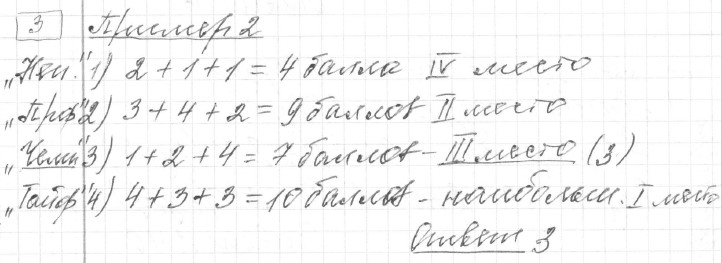 3 Пример 2
„Неп." 1) 2 + 1 + 1 = 4 балла IV место
2) 3 + 4 + 2 = 9 баллов II место
3) 1 + 2 + 4 = 7 баллов - III место (3)
4) 4 + 3 + 3 = 10 баллов - наибольш. I место
Ответ 3